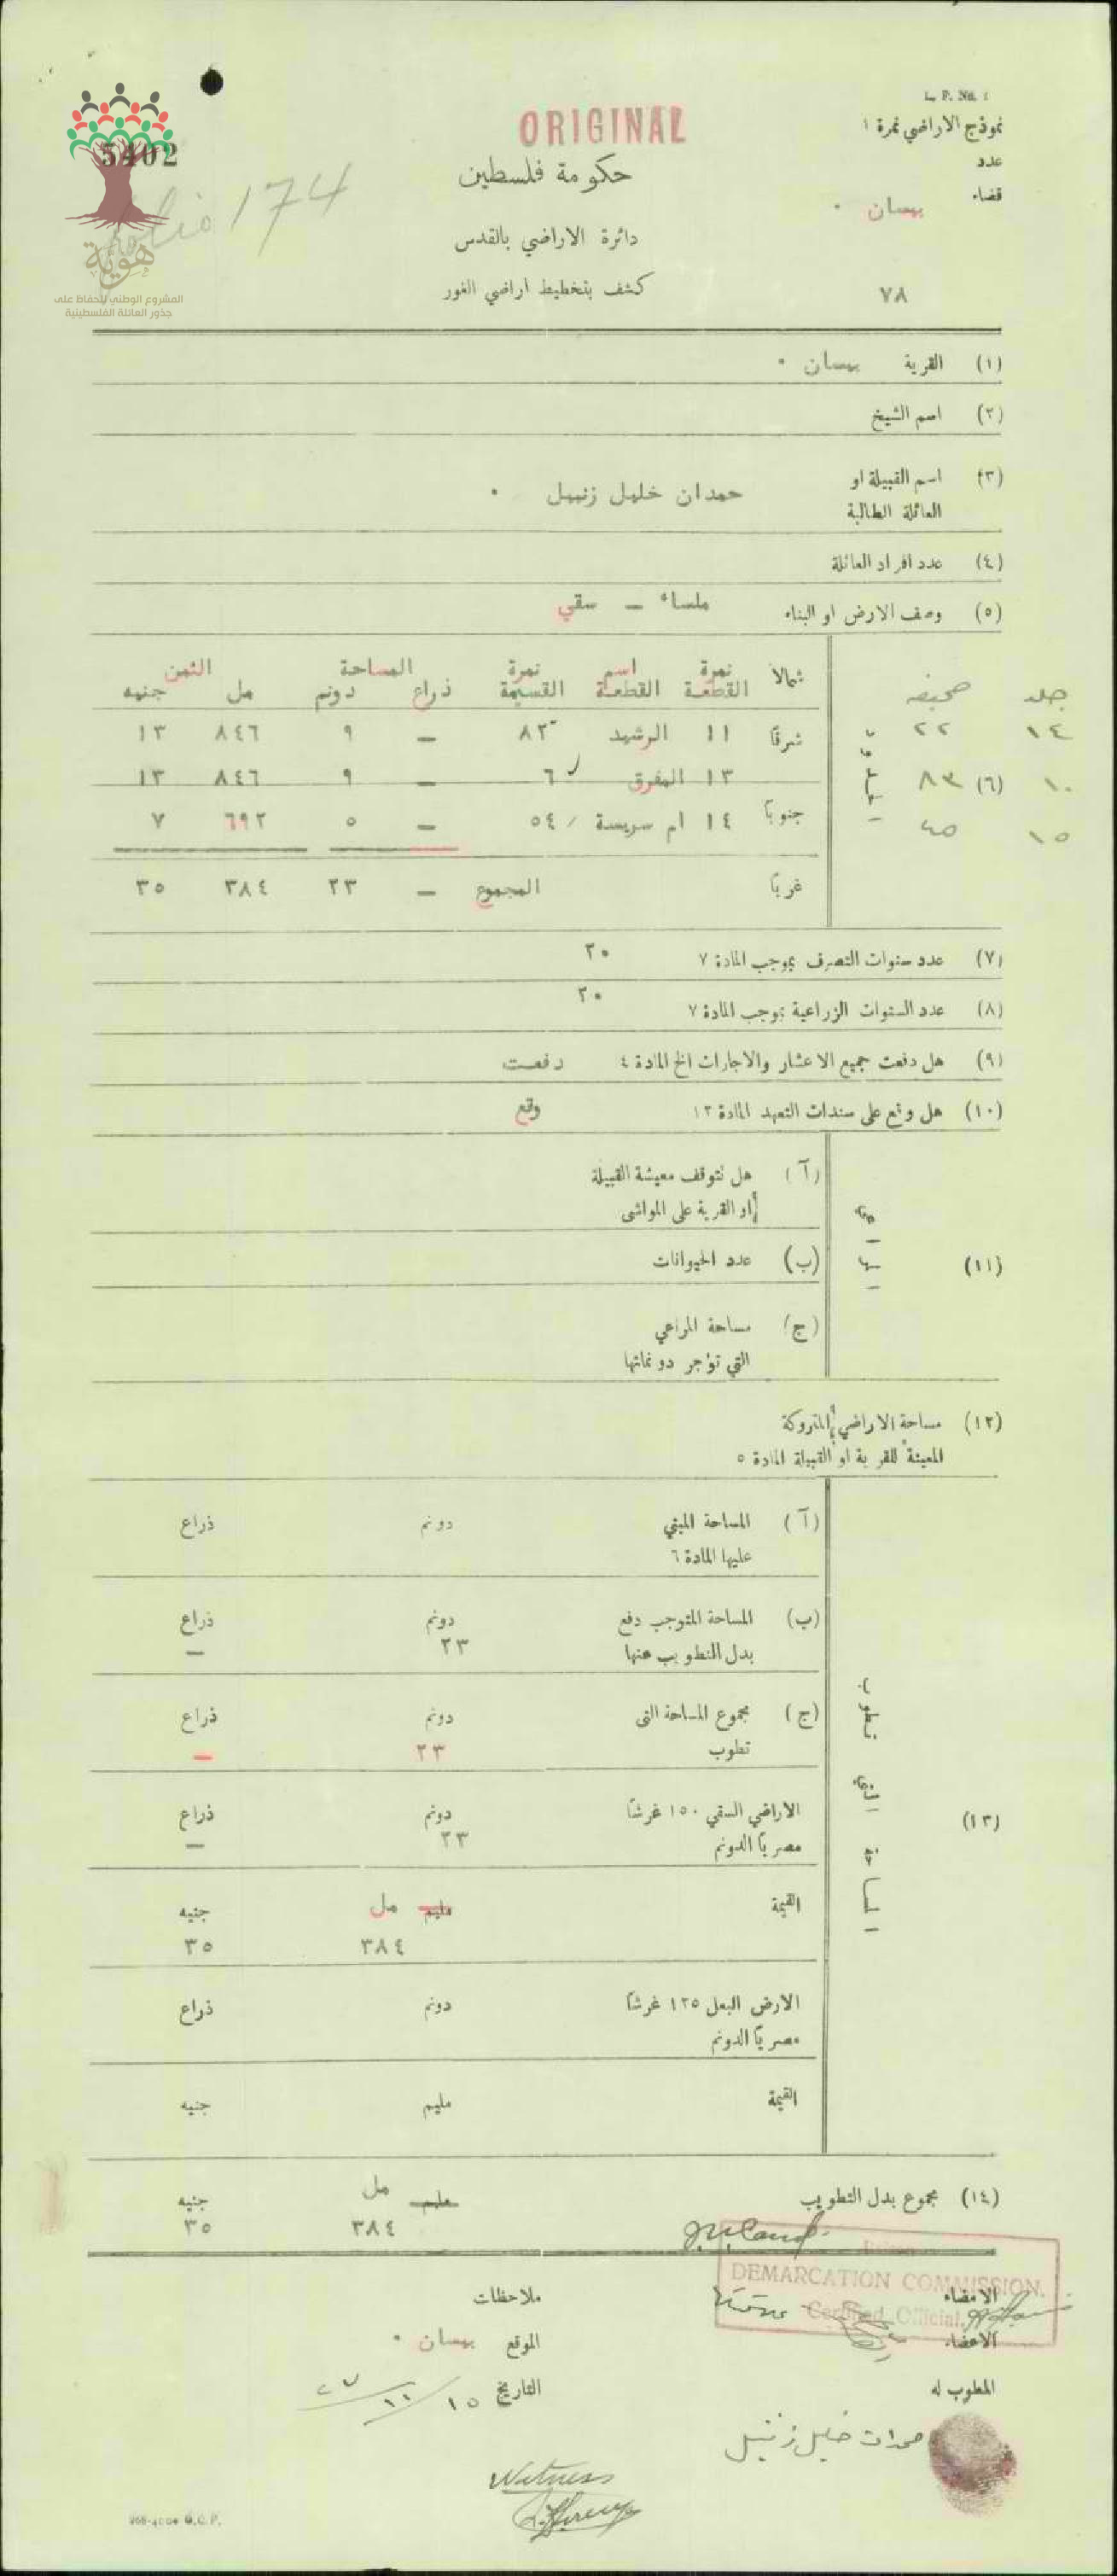 L. P. No. 1
ORIGINAL
نموذج الاراضي نمرة ١
5402
عدد
حكومة فلسطين
قضاء
بيسان ٠
folio 174
دائرة الاراضي بالقدس
هوية
المشروع الوطني للحفاظ على
جذور العائلة الفلسطينية
كشف بتخطيط اراضي الغور
٧٨
(١) القرية بيسان ٠
(٢) اسم الشيخ
(٣) اسم القبيلة او
العائلة الطالبة
حمدان خليل زنبيل ٠
(٤) عدد افراد العائلة
(٥) وصف الارض او البناء ملساء — سقي
جلد صحيفه
شمالاً نمرة القطعة اسم القطعة نمرة القسيمة المساحة ذراع دونم الثمن مل جنيه
١٤ ٢٢
شرقاً ١١ الرشيد ٨٢ — ٩ ٨٤٦ ١٣
١٠ ٨٣
(٦) الحدود
١٣ المفرق ٦ — ٩ ٨٤٦ ١٣
١٥ ٤٥
جنوباً ١٤ ام سريسة ٥٤ — ٥ ٦٩٢ ٧
غرباً المجموع — ٢٣ ٣٨٤ ٣٥
(٧) عدد سنوات التصرف بموجب المادة ٧ ٢٠
(٨) عدد السنوات الزراعية بموجب المادة ٧ ٢٠
(٩) هل دفعت جميع الاعشار والاجارات الخ المادة ٤ دفعت
(١٠) هل وقع على سندات التعهد المادة ١٣ وقع
(١١) المراعي
(آ) هل تتوقف معيشة القبيلة
او القرية على المواشي
(ب) عدد الحيوانات
(ج) مساحة المراعي
التي تؤجر دونماتها
(١٢) مساحة الاراضي المتروكة
المعينة للقرية او القبيلة المادة ٥
(١٣) المساحة التي تطوب
(آ) المساحة المبني دونم ذراع
عليها المادة ٦
(ب) المساحة المتوجب دفع دونم ذراع
بدل التطويب عنها ٢٣ —
(ج) مجموع المساحة التي دونم ذراع
تطوب ٢٣ —
الاراضي السقي ١٥٠ غرشاً دونم ذراع
مصرياً الدونم ٢٣ —
القيمة مليم مل جنيه
٣٨٤ ٣٥
الارض البعل ١٢٥ غرشاً دونم ذراع
مصرياً الدونم
القيمة مليم جنيه
(١٤) مجموع بدل التطويب مليم مل جنيه
٣٨٤ ٣٥
DEMARCATION COMMISSION.
Certified Official.
الامضاء
ملاحظات
الاعضاء
الموقع بيسان ٠
المطوب له
التاريخ ١٥/١١/٢٧
حمدان خليل زنبيل
Witness